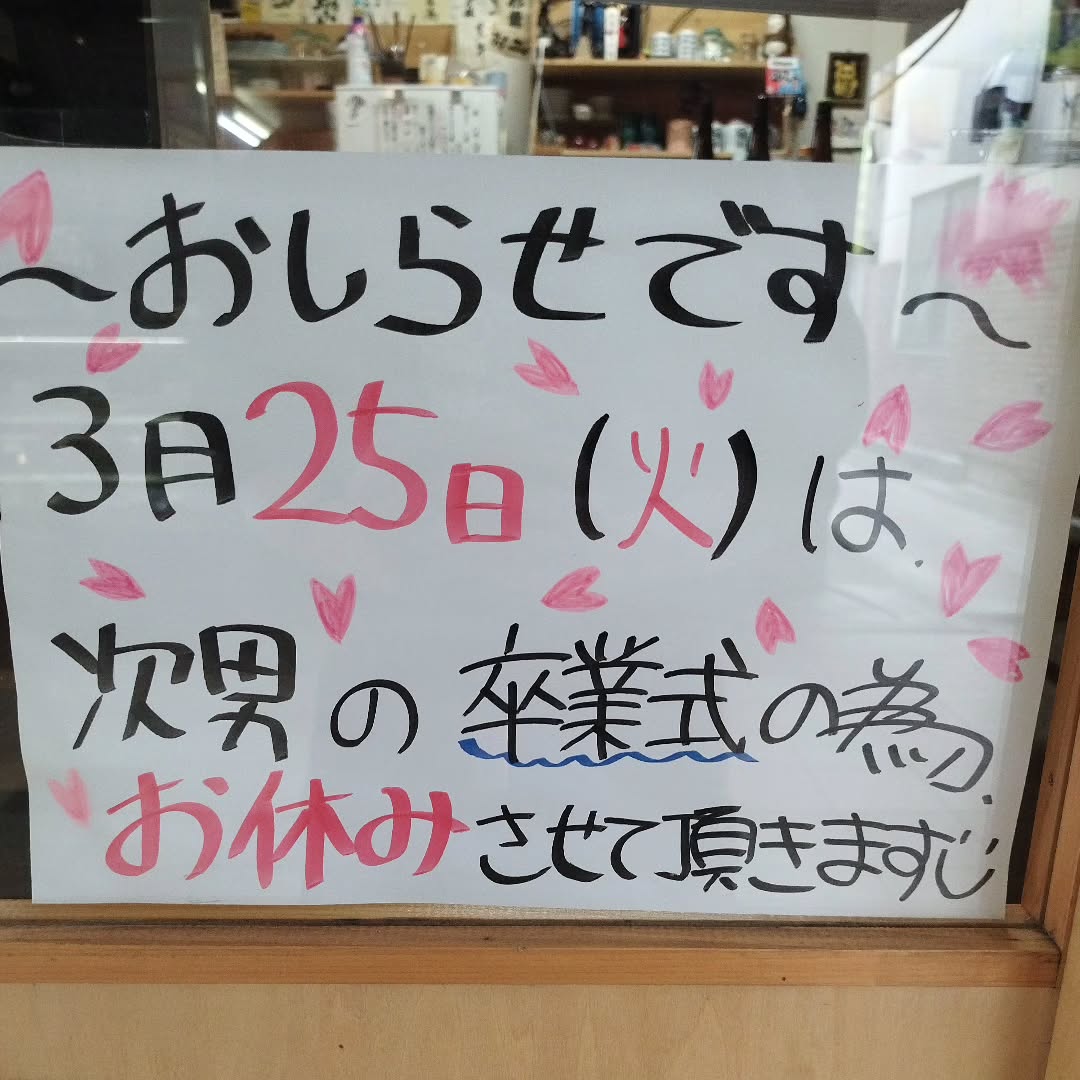 ～おしらせです～
3月25日(火)は、
次男の卒業式の為、
お休みさせて頂きます